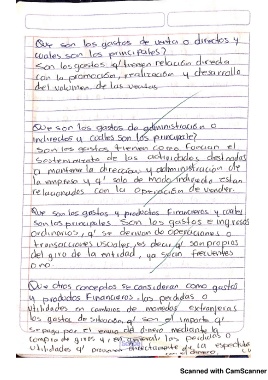 Que son los gastos de venta o directos y
cuales son los principales?
Son los gastos q' tienen relación directa
con la promoción, realización y desarrollo
del volumen de las ventas
Que son los gastos de administración o
indirectos y cuales son los principale?
Son los gastos tienen como función el
sostenimiento de las actividades destinadas
a mantener la dirección y administración de
la empresa y q' solo de modo indirecto estan
relacionados con la operación de vender.
Que son los gastos y productos Financieros y cuales
son los principales Son los gastos e ingresos
ordinarios, q' se derivan de operaciones o
transacciones usuales, es decir q' son propios
del giro de la entidad, ya sean frecuentes
o no.
Que otros conceptos se consideran como gastos
y productos Financieros. las perdidas o
utilidades en cambios de monedas extranjeras
los gastos de situación, q' son el importe q'
se paga por el envio del dinero mediante la
compra de giros y en general las perdidas o
utilidades q' provienen directamente de la
del dinero.
Scanned with CamScanner